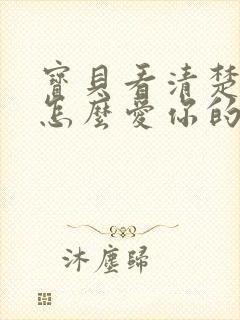 寶貝看清楚
怎麼愛你的
沐塵歸